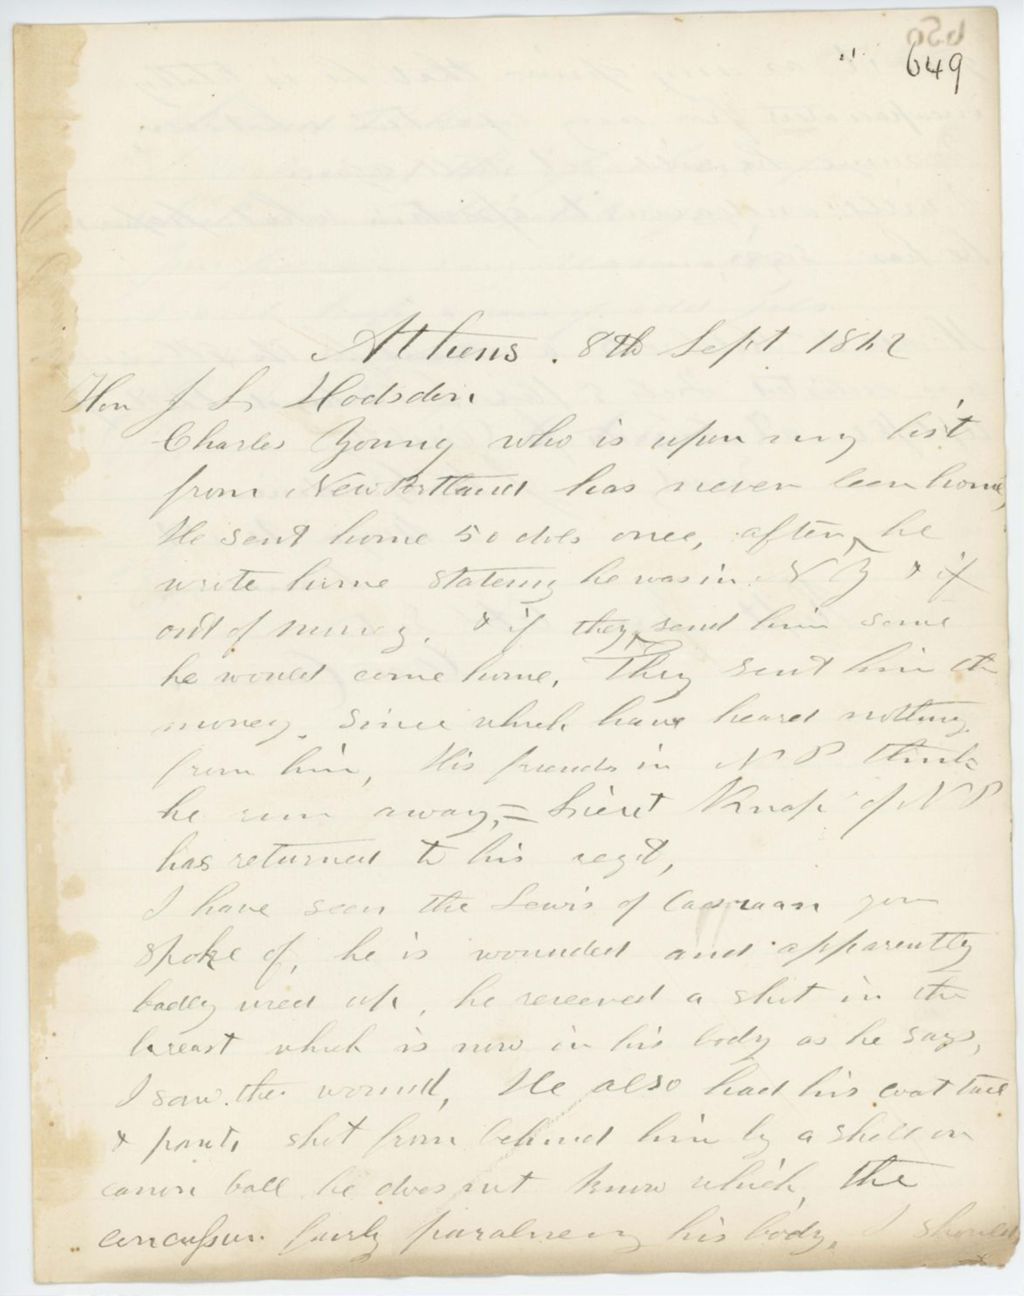 650
649
Athens. 8th Sept 1862
Hon J L Hodsdon
Charles Young who is upon my list
from New Portland has never been home,
He sent home 50 dols once, after, he
write home stateing he was in N Y & if
out of money. & if they send him some
he would come home, They sent him the
money. Since which have heard nothing
from him, His friends in N P think
he run away, = Lieut Knap of N P
has returned to his regt,
I have seen the Lewis of you
spoke of, he is wounded and apparently
badly used up, he received a shot in the
breast which is now in his body as he says,
I saw the wound, He also had his coat tail
& pants shot from behind him by a shell or
canon ball he does not know which, the
concussion fairly his body, I should